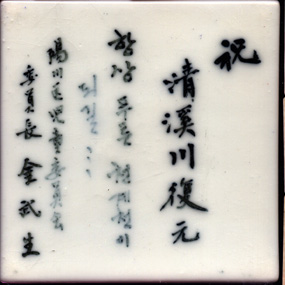 祝
清溪川復元
항상 푸른 청계천이
되길...
陽川区児童委員会
委員長 金武生